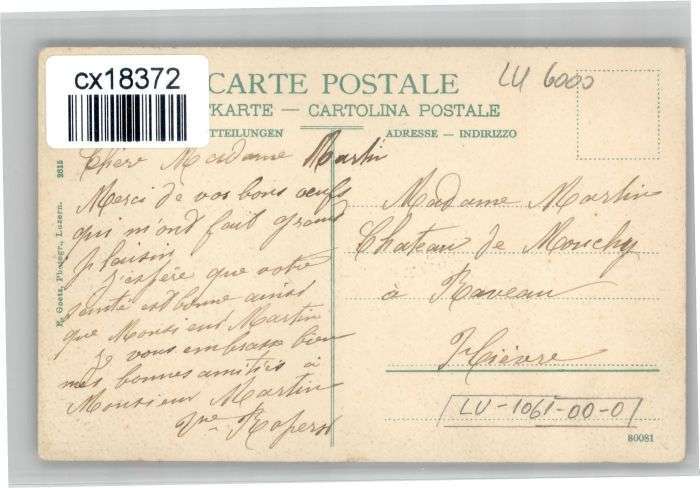 cx18372
CARTE POSTALE
TKARTE — CARTOLINA POSTALE
TTEILUNGEN
ADRESSE — INDIRIZZO
LU 6000
E. Goetz, Photogr., Luzern. 2615
Chère Madame Martin
Merci de vos bons oeufs
qui m'ont fait grand
plaisir
j'espère que votre
santé est bonne ainsi
que Monsieur Martin
je vous embrasse bien
mes bonnes amitiés à
Monsieur Martin
Vve
Madame Martin
Chateau de Mouchy
à Raveau
Nièvre
LU-1061-00-01
80081